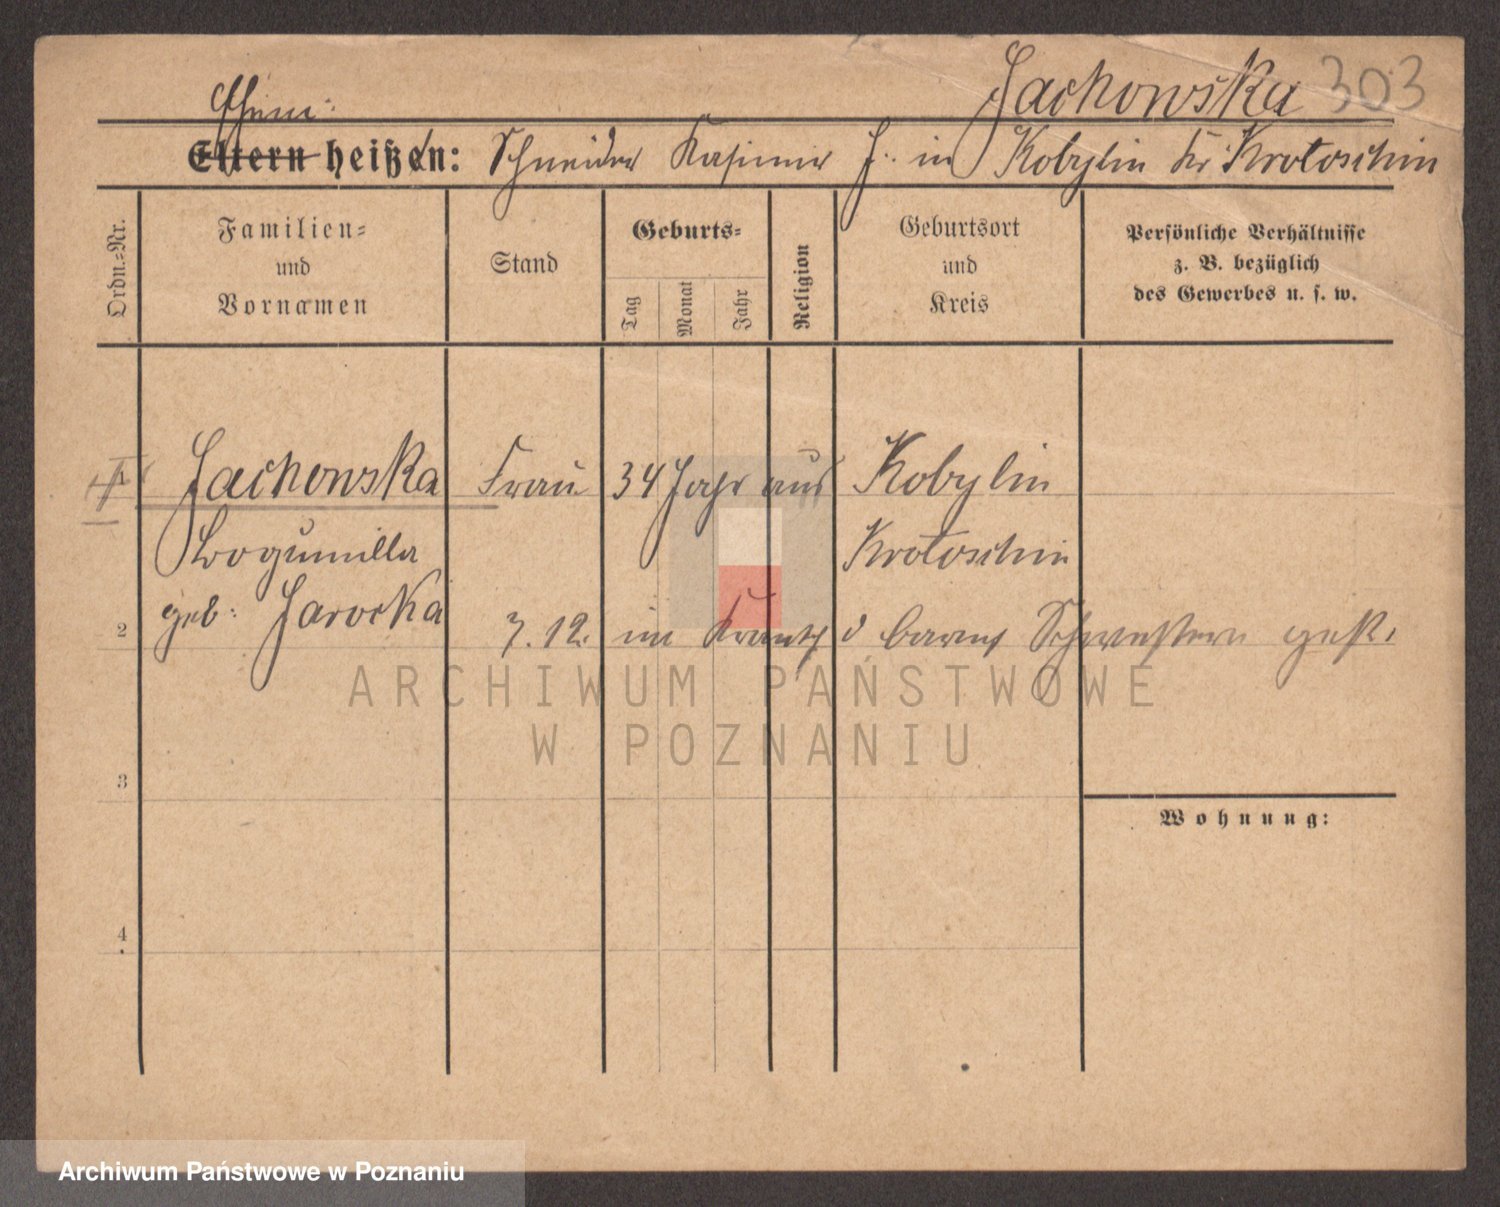 Jachowska 303
Ehem:
Eltern heißen: Schneider Kasimir J. in Kobylin Kr. Krotoschin
Ordn.-Nr.
Familien-
und
Vornamen
Stand
Geburts-
Tag
Monat
Jahr
Religion
Geburtsort
und
Kreis
Persönliche Verhältnisse
z. B. bezüglich
des Gewerbes u. s. w.
Jachowska Frau 34 Jahr aus Kobylin
Bogumilla Krotoschin
geb: Jarocka
2 7.12. im Krankh d barmh Schwestern gest.
ARCHIWUM PAŃSTWOWE
W POZNANIU
3
Wohnung:
4
Archiwum Państwowe w Poznaniu